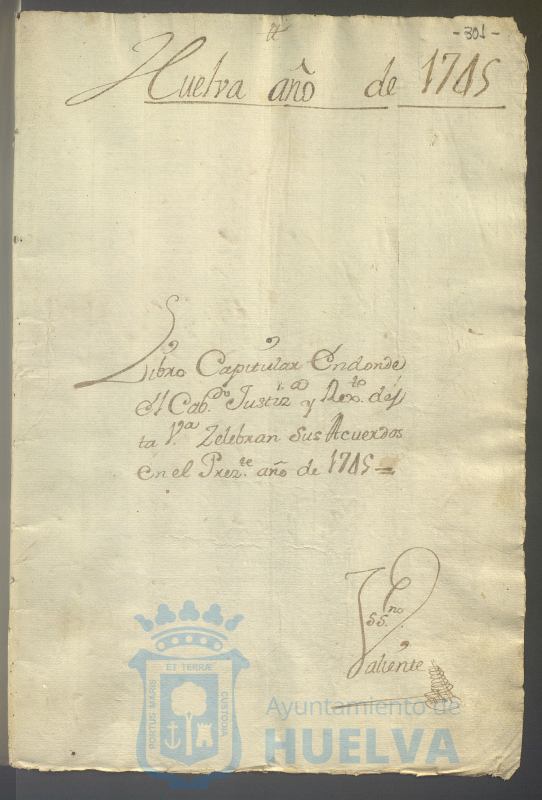 -301-
Huelva año de 1745
Libro Capitular Endonde
el Cab.do Justiz.a y Rex.to des
ta V.a Zelebran Sus Acuerdos
en el Prez.te año de 1745
SS.no
Valiente
ET TERRÆ
PORTUS MARIS
CUSTODIA
Ayuntamiento de
HUELVA